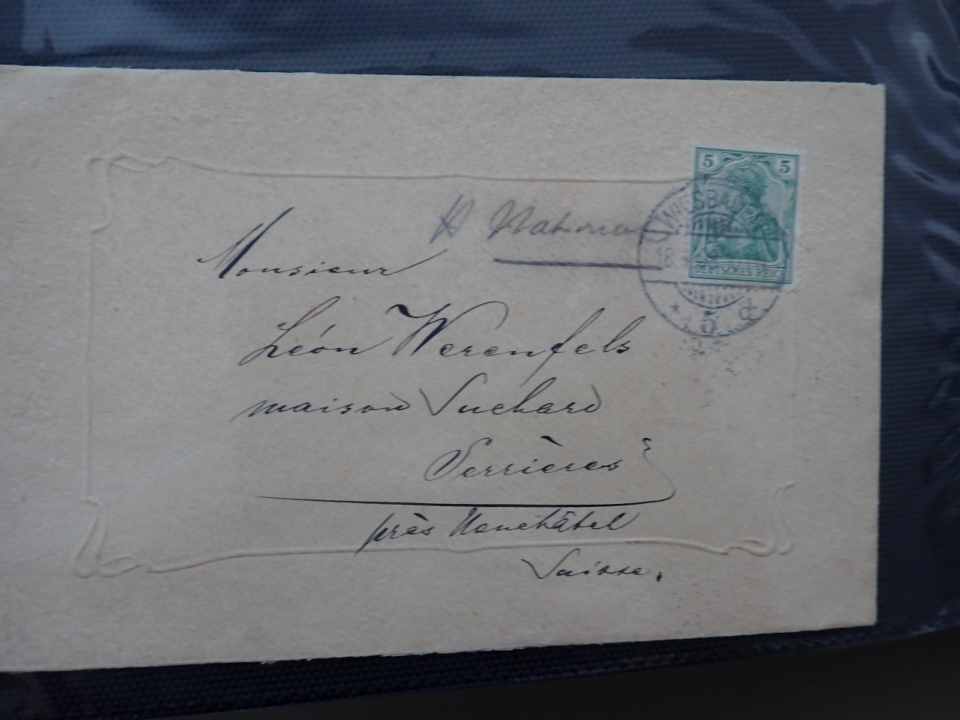 5 5
WIESBAD
18
5 d
DEUTSCHES REICH
Monsieur
Léon Werenfels
maison Suchard
Serrières
près Neuchâtel
Suisse.